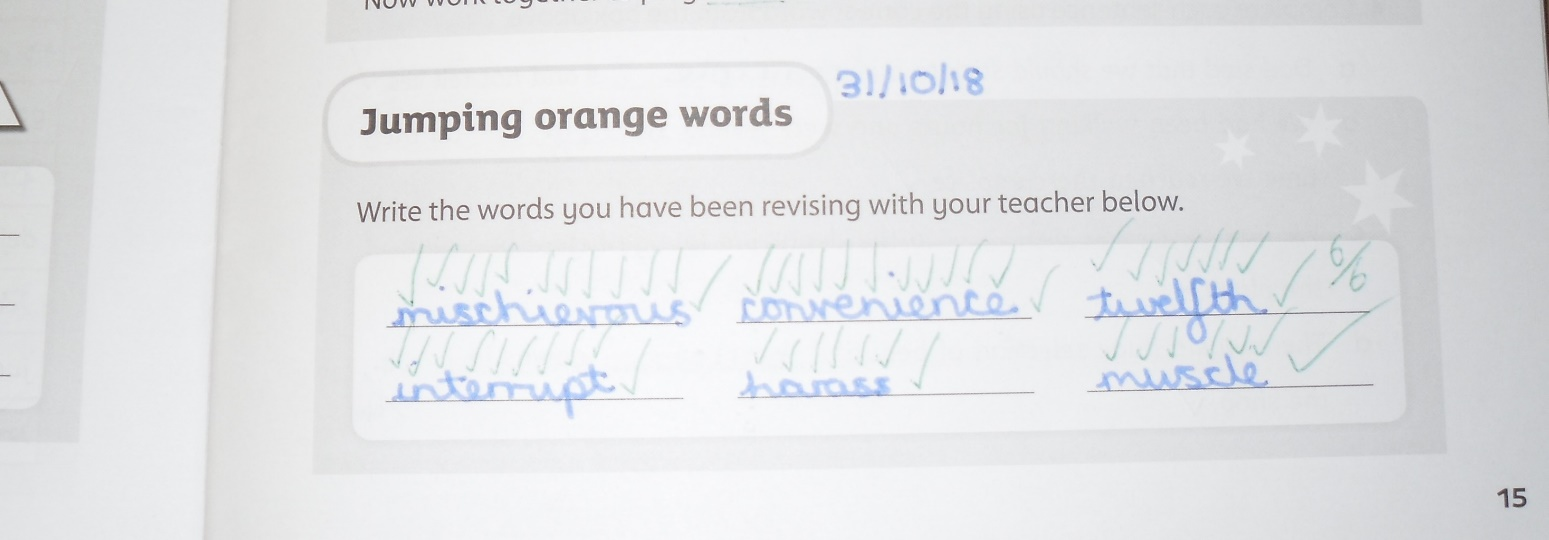 Now work together
Jumping orange words
31/10/18
Write the words you have been revising with your teacher below.
mischievous convenience twelfth 6/6
interrupt harass muscle
15